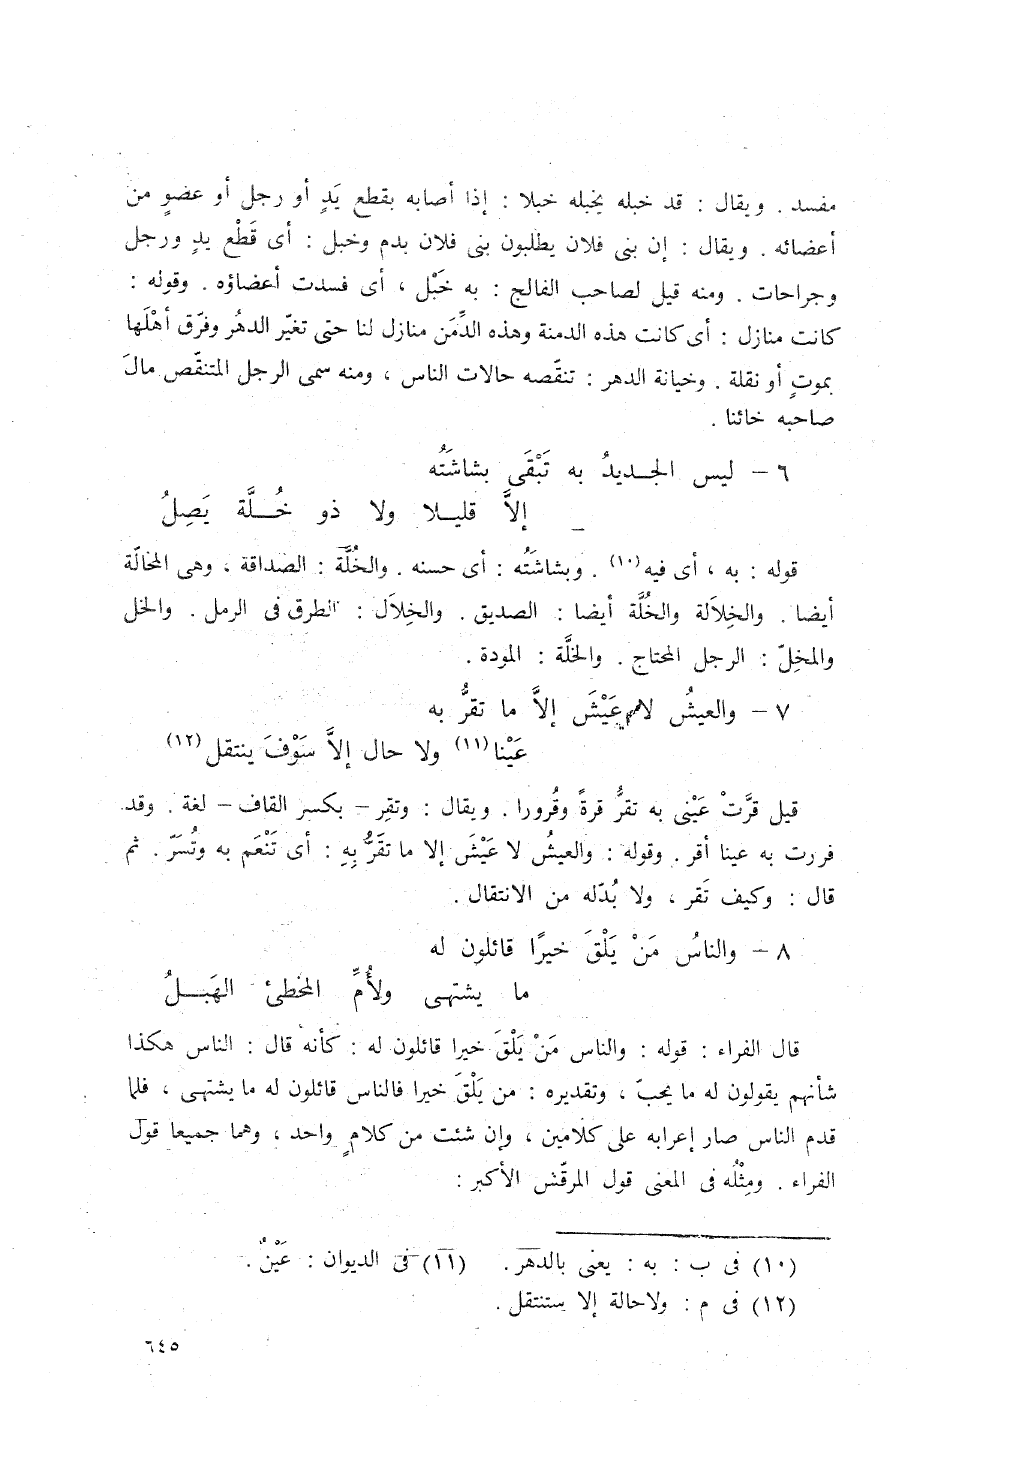 مفسد . ويقال : قد خبله يخبله خبلا : إذا أصابه بقطع يَدٍ أو رجل أو عضوٍ من
أعضائه . ويقال : إن بنى فلان يطلبون بنى فلان بدم وخبل : أى قَطْع يدٍ ورجل
وجراحات . ومنه قيل لصاحب الفالج : به خَبْل ، أى فسدت أعضاؤه . وقوله :
كانت منازل : أى كانت هذه الدمنة وهذه الدِّمَن منازل لنا حتى تغيّر الدهُر وفرّق أهْلَها
بموتٍ أو نقلة . وخيانة الدهر : تنقّصه حالات الناس ، ومنه سمى الرجل المتنقّص مالَ
صاحبه خائنا .
٦ – ليس الجـديدُ به تَبْقَى بشاشَتُه
إلاَّ قليـلا ولا ذو خُـلَّة يَصِلُ
قوله : به ، أى فيه(١٠) . وبشاشَتُه : أى حسنه . والخُلَّة : الصداقة ، وهى المخالّة
أيضا . والخِلاَلة والخُلَّة أيضا : الصديق . والخِلاَل : الطرق فى الرمل . والخل
والمخِلّ : الرجل المحتاج . والخلَّة : المودة .
٧ – والعيشُ لا عَيْشَ إلاَّ ما تقرُّ به
عَيْنا(١١) ولا حال إلاَّ سَوْفَ ينتقل(١٢)
قيل قرَّتْ عَيْنى به تقرُّ قرةً وقُرورا . ويقال : وتقِر – بكسر القاف – لغة . وقد
قررت به عينا أقر . وقوله : والعيشُ لا عَيْشَ إلا ما تقَرُّ بِهِ : أى تَنْعَم به وتُسَرّ . ثم
قال : وكيف تَقر ، ولا بُدّله من الانتقال .
٨ – والناسُ مَنْ يَلْقَ خيرًا قائلون له
ما يشتهى ولأُمِّ المخطئ الهَبَـلُ
قال الفراء : قوله : والناس مَنْ يَلْقَ خيرا قائلون له : كأنه قال : الناس هكذا
شأنهم يقولون له ما يحبّ ، وتقديره : من يَلْقَ خيرا فالناس قائلون له ما يشتهى ، فلما
قدم الناس صار إعرابه على كلامين ، وإن شئت من كلامٍ واحد ، وهما جميعا قول
الفراء . ومِثْلُه فى المعنى قول المرقّش الأكبر :
(١٠) فى ب : به : يعنى بالدهر . (١١) فى الديوان : عَيْنٌ .
(١٢) فى م : ولاحالة إلا ستنتقل .
٦٤٥